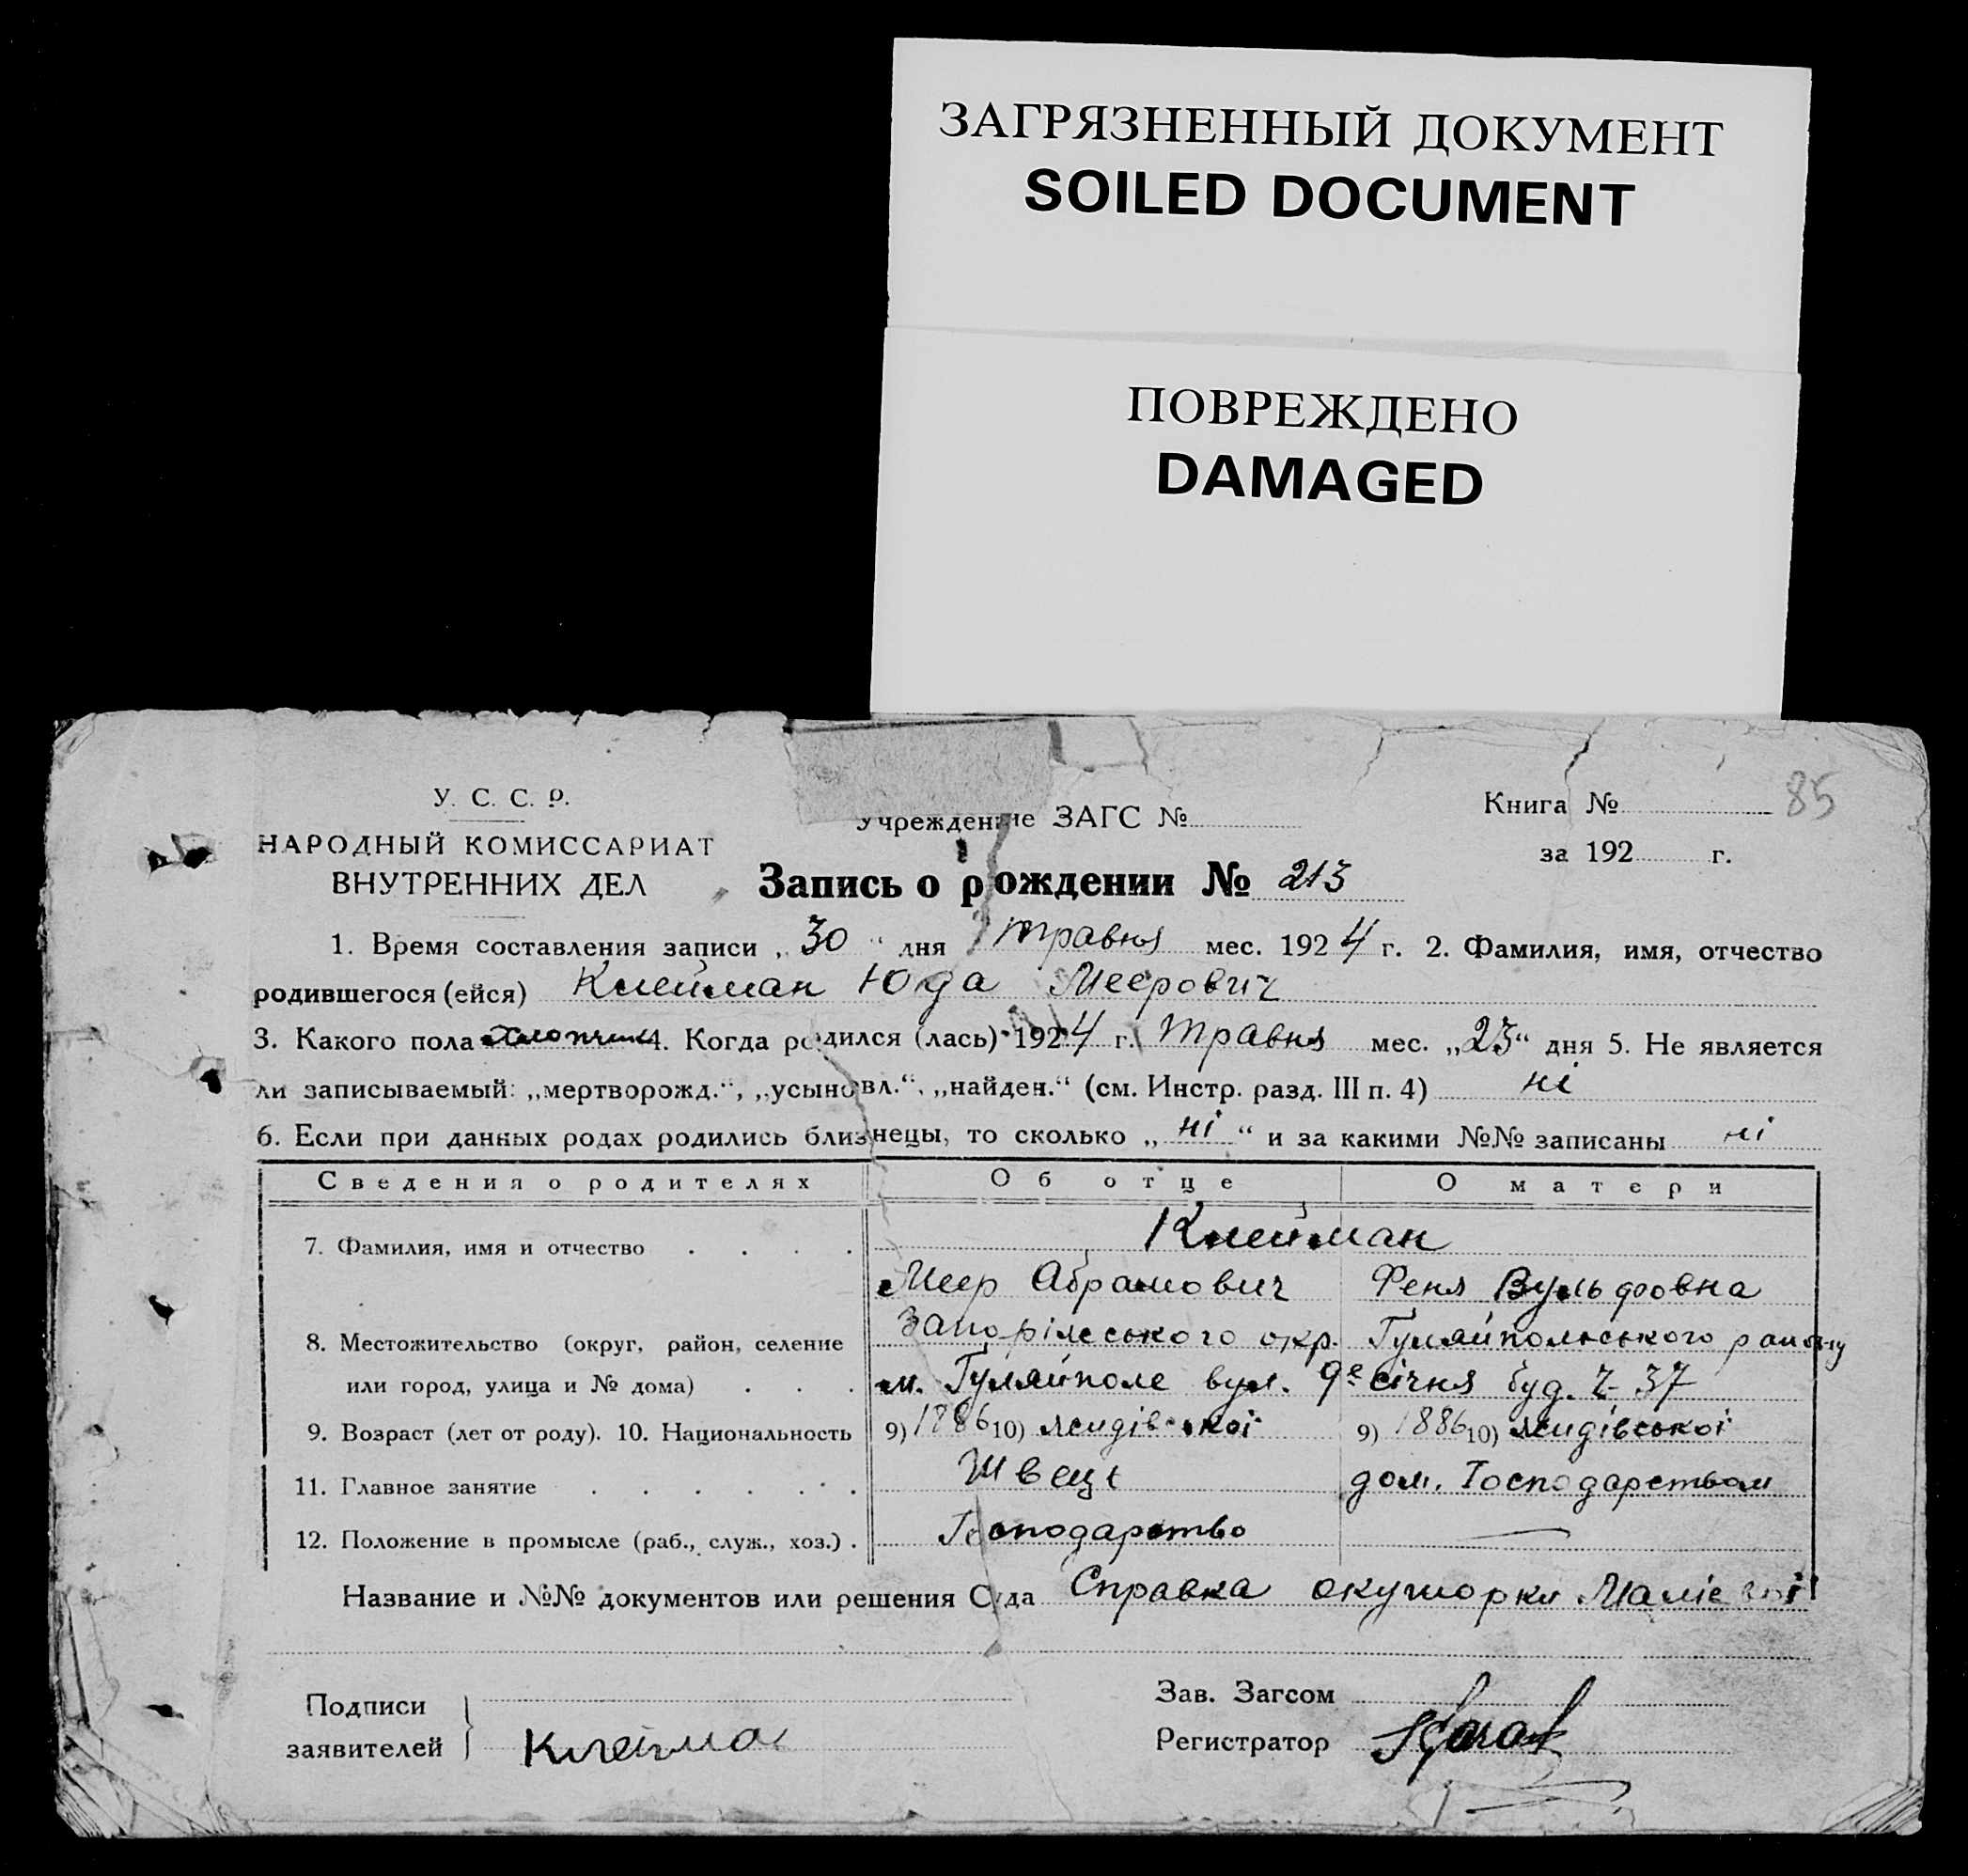 ЗАГРЯЗНЕННЫЙ ДОКУМЕНТ
SOILED DOCUMENT
ПОВРЕЖДЕНО
DAMAGED
У. С. С. Р.
НАРОДНЫЙ КОМИССАРИАТ
ВНУТРЕННИХ ДЕЛ
Учреждение ЗАГС №
Книга № 85
за 192 г.
Запись о рождении № 213
1. Время составления записи „30“ дня травня мес. 1924 г. 2. Фамилия, имя, отчество
родившегося (ейся) Клейман Юда Меерович
3. Какого пола хлопчик 4. Когда родился (лась) 1924 г. травня мес. „23“ дня 5. Не является
ли записываемый: „мертворожд.“, „усыновл.“, „найден.“ (см. Инстр. разд. III п. 4) ні
6. Если при данных родах родились близнецы, то сколько „ні“ и за какими №№ записаны ні
Сведения о родителях Об отце О матери
7. Фамилия, имя и отчество Клейман
Меер Абрамович Феня Вульфовна
8. Местожительство (округ, район, селение Запоріжського окр. Гуляйпольського району
или город, улица и № дома) м. Гуляйполе вул. 9е січня буд. ч. 37
9. Возраст (лет от роду). 10. Национальность 9) 1886 10) жидівської 9) 1886 10) жидівської
11. Главное занятие Швець дом. Господарством
12. Положение в промысле (раб., служ., хоз.) Господарство —
Название и №№ документов или решения Суда Справка окушорки
Подписи
заявителей Клейма
Зав. Загсом
Регистратор